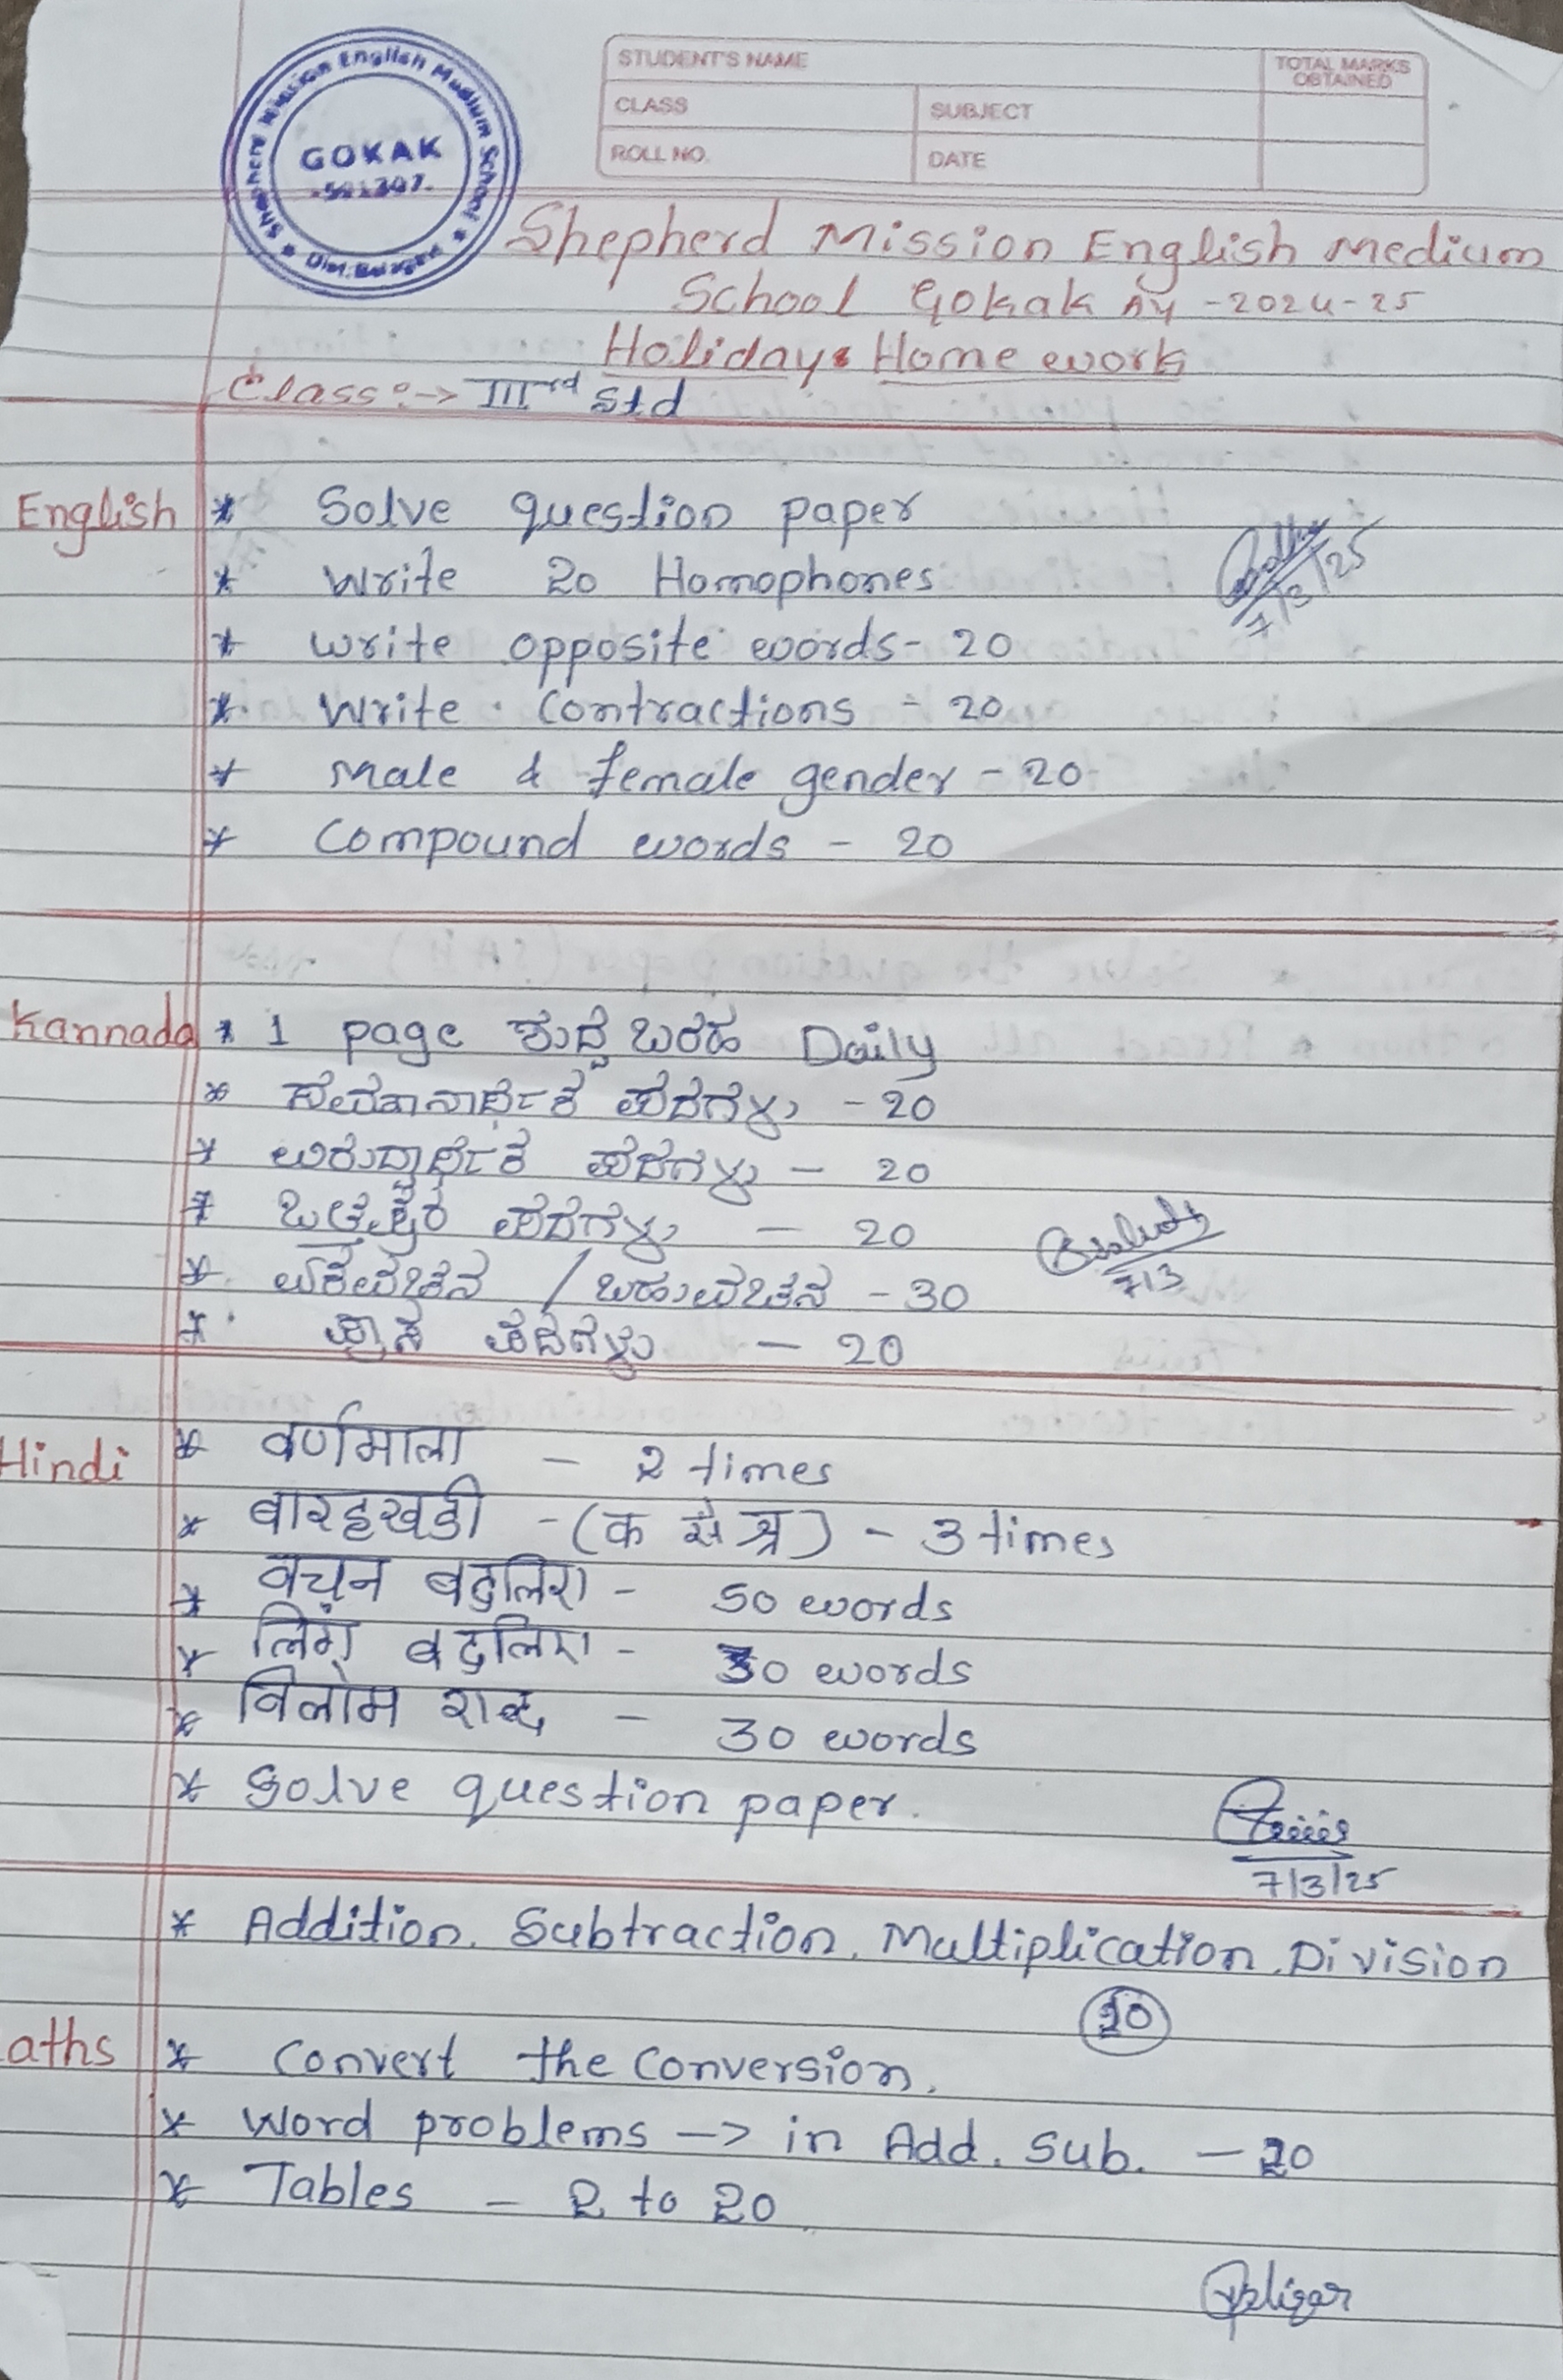 Shepherd Mission English Medium School
GOKAK
Dist. Belagavi
STUDENT'S NAME
TOTAL MARKS OBTAINED
CLASS
SUBJECT
ROLL NO.
DATE
Shepherd Mission English Medium
School Gokak AY - 2024-25
Holidays Home work
Class :-> IIIrd Std
English * Solve question paper
* Write 20 Homophones
7/3/25
* Write opposite words - 20
* Write Contractions - 20
* Male & female gender - 20
* Compound words - 20
Kannada * 1 page ಶುದ್ಧ ಬರಹ Daily
* ಸಮಾನಾರ್ಥಕ ಪದಗಳು - 20
* ವಿರುದ್ಧಾರ್ಥಕ ಪದಗಳು - 20
* ಒತ್ತಕ್ಷರ ಪದಗಳು - 20
7/3
* ಏಕವಚನ / ಬಹುವಚನ - 30
* ಪ್ರಾಸ ಪದಗಳು - 20
Hindi * वर्णमाला - 2 times
* बारहखडी - (क से श्र) - 3 times
* वचन बदलिए - 50 words
* लिंग बदलिए - 30 words
* विलोम शब्द - 30 words
* Solve question paper.
7/3/25
* Addition, Subtraction, Multiplication, Division
20
aths * Convert the Conversion.
* Word problems -> in Add. Sub. - 20
* Tables - 2 to 20